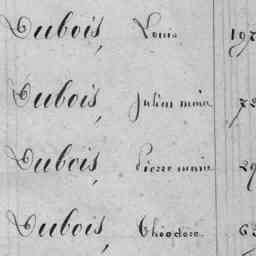 Dubois, Louis 197
Dubois, Julien marie 72
Dubois, Pierre marie 29
Dubois, Théodore 63